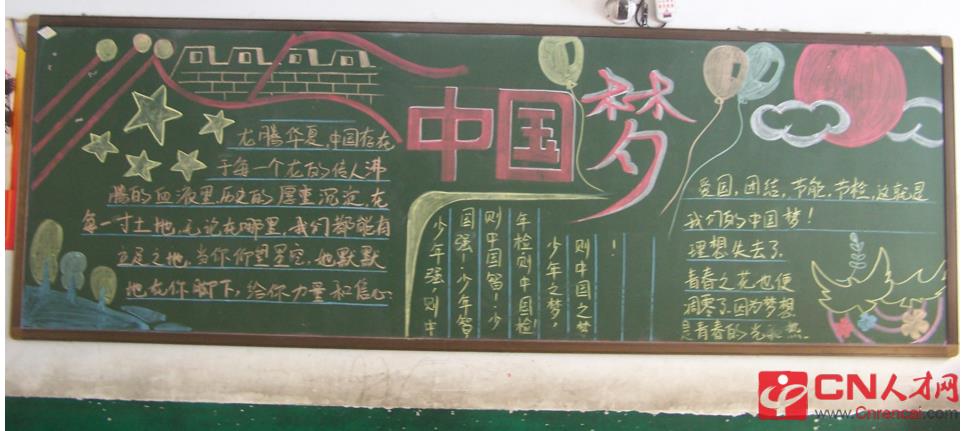 中国梦
龙腾华夏,中国存在
于每一个龙的传人沸
腾的血液里,历史的厚重沉淀,在
每一寸土地,无论在哪里,我们都能有
立足之地,当你仰望星空,她默默
地在你脚下,给你力量和信心.
少年强则中
国强!少年智
则中国智!少
年检则中国检!
少年之梦,
则中国之梦
!
爱国,团结,节能,节检,这就是
我们的中国梦!
理想失去了
青春之花也便
凋零了.因为梦想
是青春的光和热.
CN人才网
www.Cnrencai.com